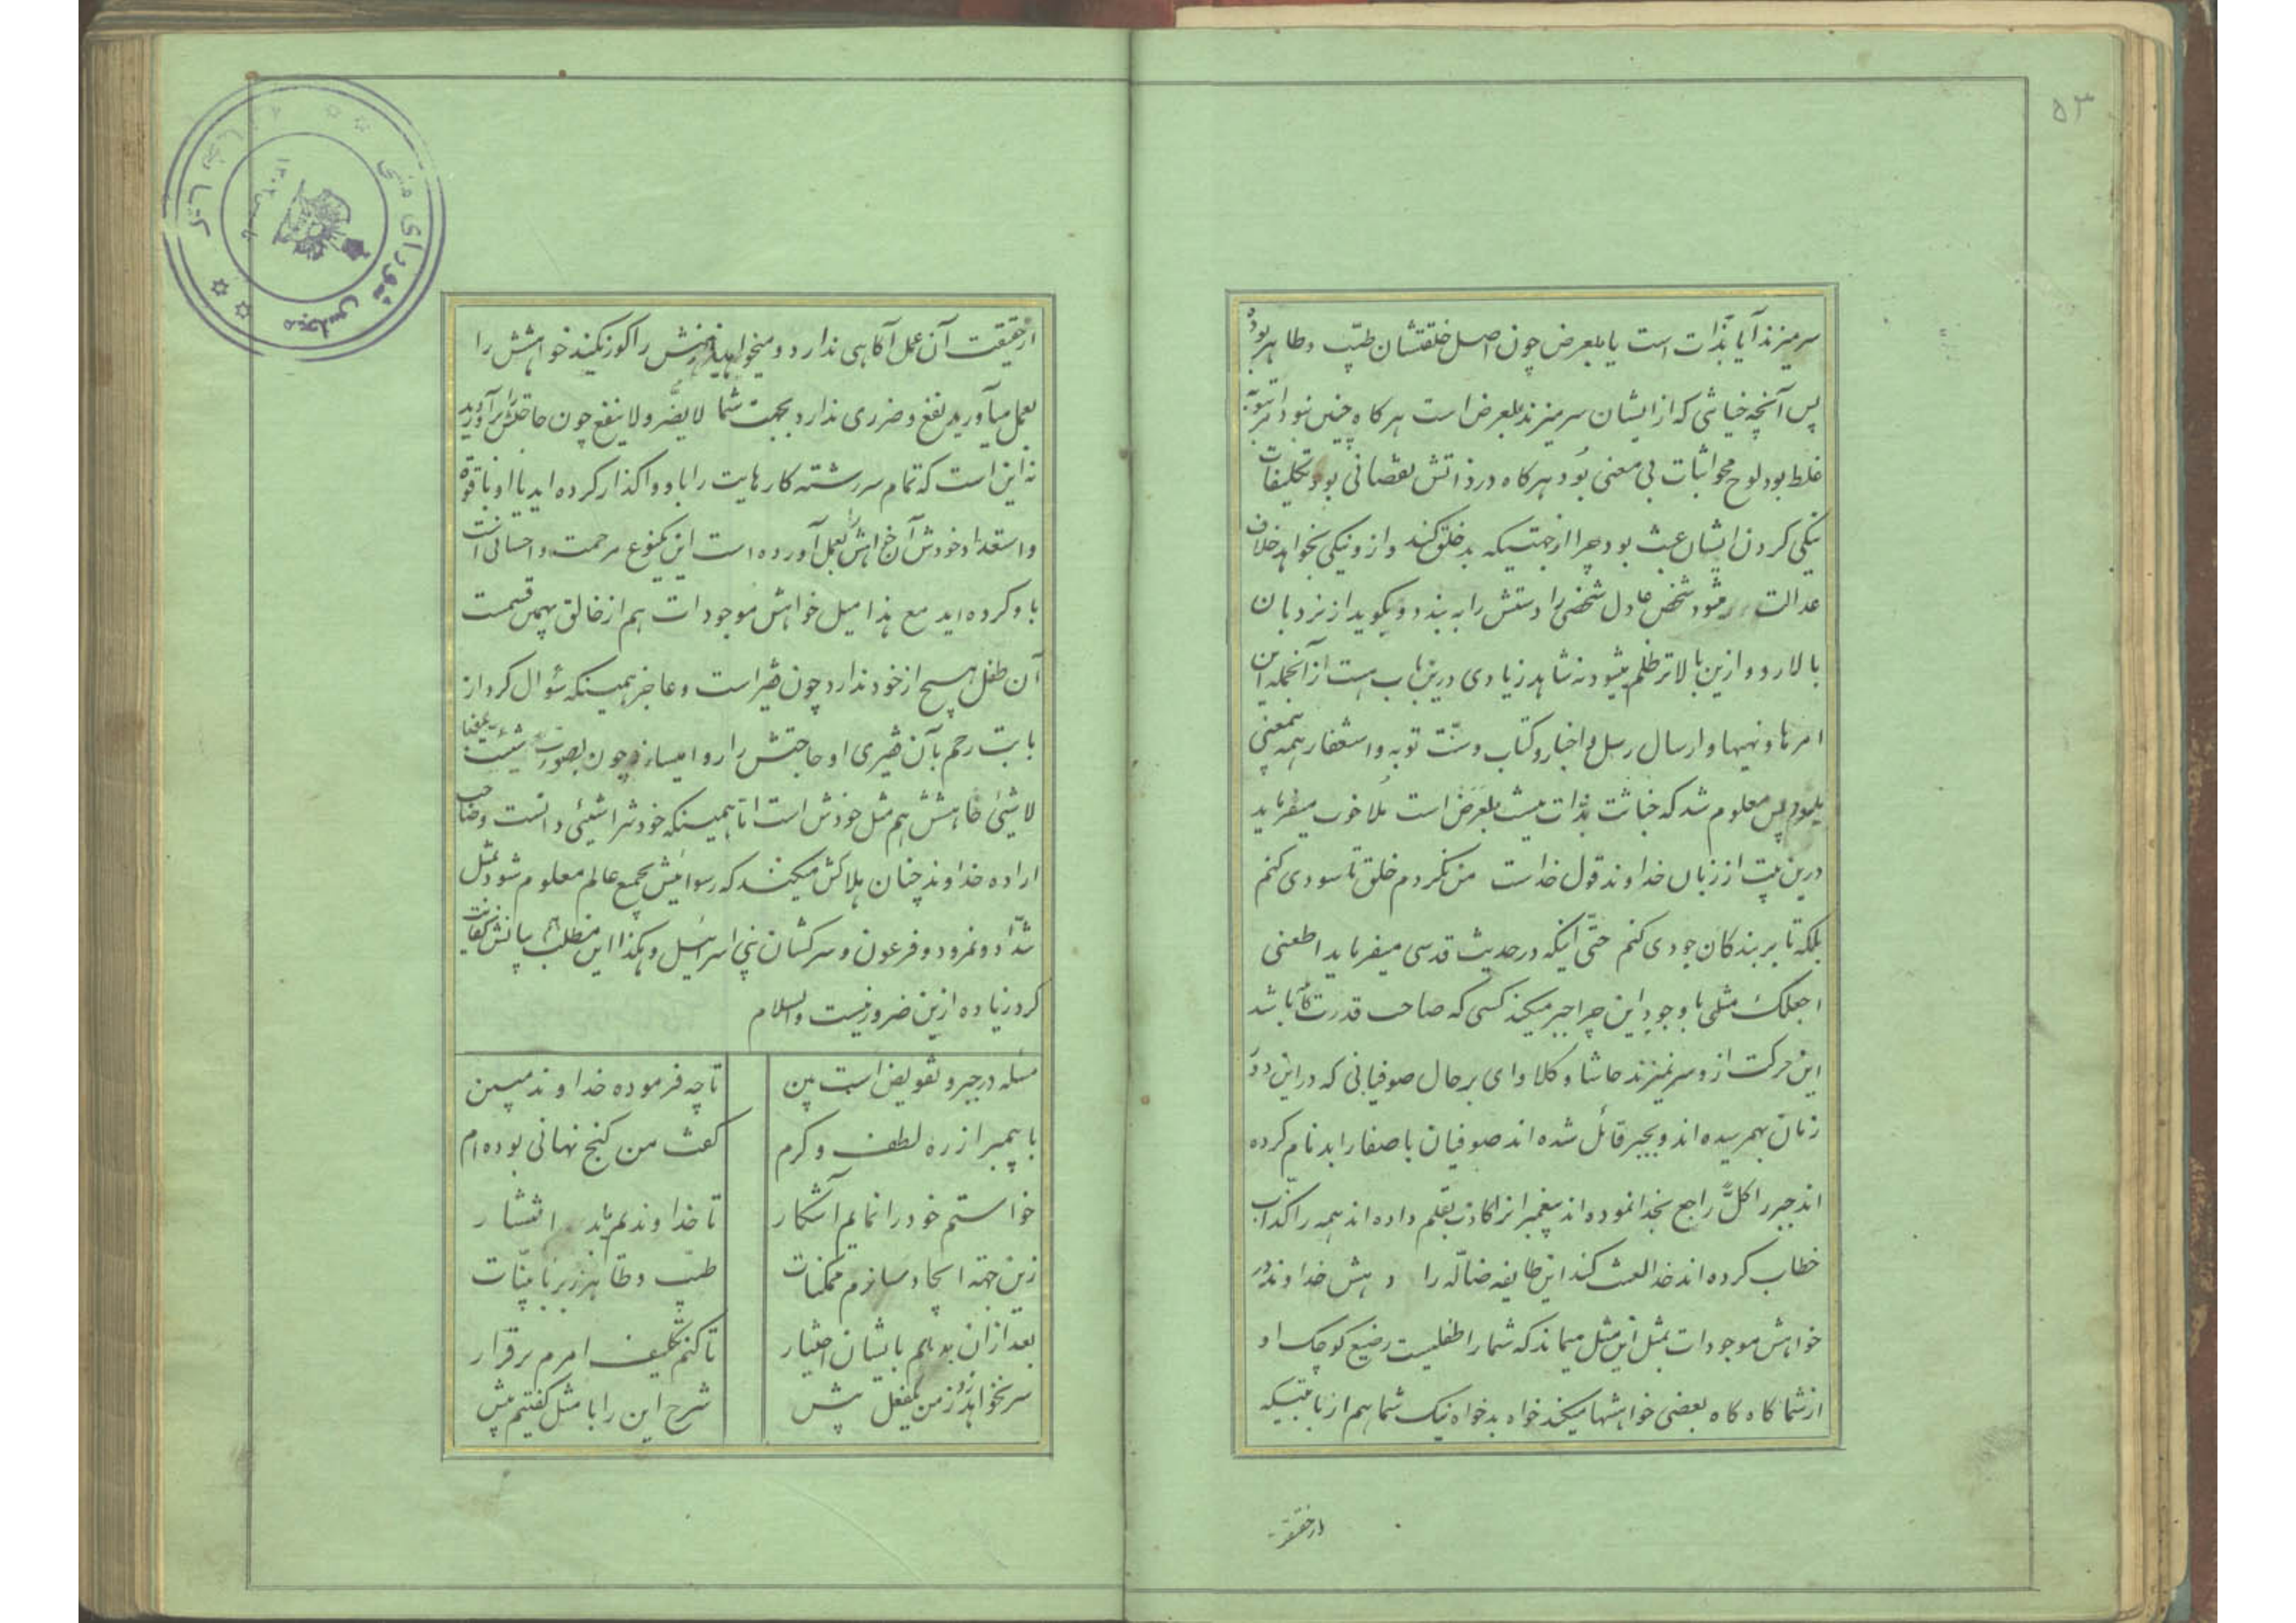 ۵۳
سرمیزند آیا بذات است یا بلعرض چون اصل خلقتشان طیّب وطاهر بوده
پس آنچه خباثی که از ایشان سرمیزند بلعرض است هرکاه چنین نبود
غلط بود لوح محو اثبات بی معنی بُود هرکاه در ذاتش نقصانی بود تکلیفات
نیکی کردن ایشان عبث بود چرا ازجهتیکه بد خلق کند و ازو نیکی بخواهد خلاف
عدالت میشود شخص عادل شخصی را دستش را به بندد و بکوید از نردبان
بالا رود و ازین بالاتر ظلم میشود نه شاهد زیادی درین باب هست از آنجمله این
امرها و نهیها و ارسال رسل و اخبار و کتاب و سنّت توبه و استغفار همه بیمعنی
میبود پس معلوم شد که خباثت بذات نیست بلعرض است مُلا خوب میفرماید
درین بیت از زبان خداوند قول خداست من نکردم خلق تا سودی کنم
بلکه تا بر بندکان جودی کنم حتّی اینکه در حدیث قدسی میفرماید اطعنی
اجعلکَ مثلی با وجودِ این چرا جبر میکند کسی که صاحب قدرت باشد
این حرکت ازو سر نمیزند حاشا و کلا وای بر حال صوفیانی که در این دو
زمان بهمرسیده اند و بجبر قائل شده اند صوفیان باصفا را بدنام کرده
اند جبر را کلاً راجع بخدا نموده اند پیغمبرانرا کاذب بقلم داده اند همه را کذاب
خطاب کرده اند خدا لعنت کند این طایفه ضالّه را دهش خداوند در
خواهش موجودات بمثل این مثل میماند که شما را طفلیست رضیع کوچک او
از شما کاه کاه بعضی خواهشها میکند خواه بد خواه نیک شما هم از بابتیکه
از حقیقت
از حقیقت آن عمل آکاهی ندارد و میخواهید ذهنش را کور نکنید خواهشش را
بعمل میآورید نفع و ضرری ندارد بجهت شما لا یضّر ولا ینفع چون حاجتش را برآورید
نه این است که تمام سررشته کارهایت را باو واکذار کرده اید یا او با قوة
و استعداد خودش آن خواهش را بعمل آورده است این یکنوع مرحمت و احسانی است
باو کرده اید مع هذا میل خواهش موجودات هم از خالق بهمین قسمت
آن طفل هیچ از خود ندارد چون فقیر است و عاجز همینکه سُوال کرد از
بابت رحم بآن فقیری او حاجتش را روا میسازد چون بصورت شیئیت بمعنا
لاشیئی خاهشش هم مثل خودش است تا همینکه خودشرا شیئی دانست و صاحب
اراده خداوند چنان هلاکش میکند که رسوائیش بجمع عالم معلوم شود مثل
شدّاد و نمرود و فرعون و سرکشان بنی اسرائیل و هکذا این مطلب بیانش کفایت
کرد زیاده ازین ضرور نیست والسلام
مسئله در جبر و تفویض است بین	تا چه فرموده خداوند مبین
با پیمبر از ره لطف و کرم	کفت من کنج نهانی بوده ام
خواستم خود را نمایم آشکار	تا خداوندیم یابد انتشار
زین جهة ایجاد سازم ممکنات	طیّب و طاهر ز بر تا بیّنات
بعد ازان بدهم بایشان اختیار	تا کنم تکلیف امرم برقرار
سر نخواهد زد ز من یکفعل بیش	شرح این را با مثل کفتیم پیش
مجلس شورای ملی